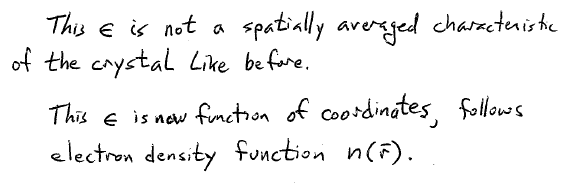 This ϵ is not a spatially averaged characteristic
of the crystal like before.
This ϵ is now function of coordinates, follows
electron density function n(r̄).